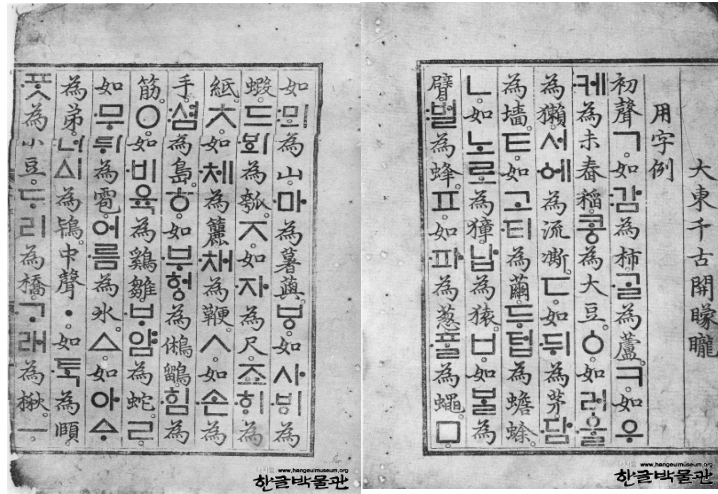 大東千古開曚曨
用字例
初聲ㄱ。如:감為柿。ᄀᆞᆯ為蘆。ㅋ。如우
케為未舂稻。코ᇰ為大豆。ㆁ。如러ᅌᅮᆯ
為獺。서ᅌᅦ為流凘。ㄷ。如:뒤為茅。담
為墻。ㅌ。如고티為繭。두텁為蟾蜍。
ㄴ。如노로為獐。납為猿。ㅂ。如ᄇᆞᆯ為
臂。:벌為蜂。ㅍ。如파為葱。ᄑᆞᆯ為蠅。ㅁ。
如:뫼為山。마為薯藇。ㅸ。如사ᄫᅵ為
蝦。드ᄫᅴ為瓠。ㅈ。如자為尺。죠ᄒᆡ為
紙。ㅊ。如체為籭。채為鞭。ㅅ。如손為
手。:셤為島。ㅎ。如부허ᇰ為鵂鶹。힘為
筋。ㅇ。如비육為鷄雛。ᄇᆞ얌為蛇。ㄹ。
如무뤼為雹。어름為氷。ㅿ。如아ᅀᆞ
為弟。:너ᅀᅵ為鴇。中聲ㆍ。如ᄐᆞᆨ為頤。
ᄑᆞᆺ為小豆。ᄃᆞ리為橋。ᄀᆞ래為楸。ㅡ。
www.hangeulmuseum.org
한글박물관
www.hangeulmuseum.org
한글박물관